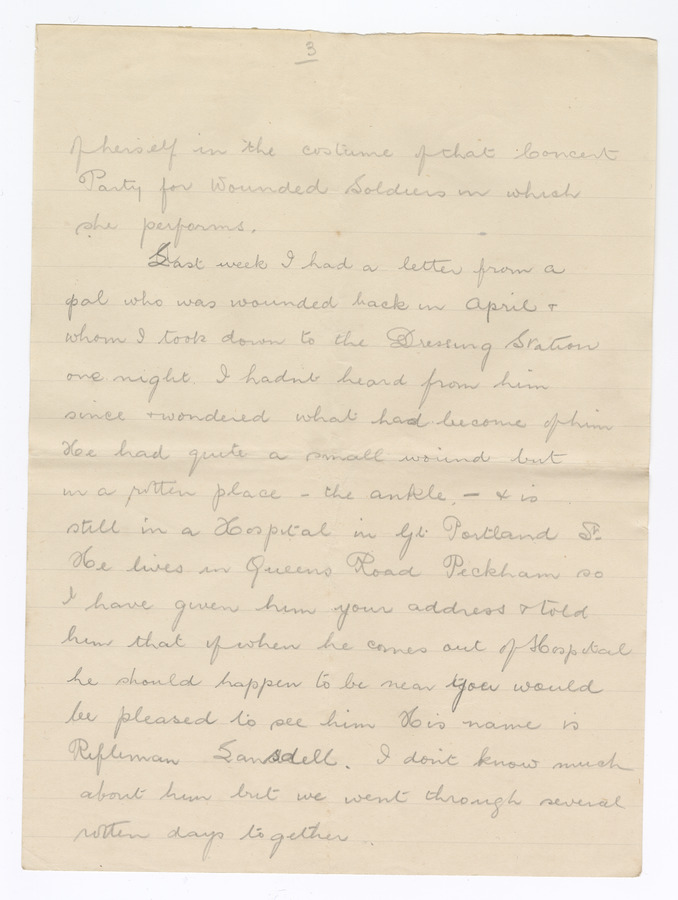 3
of herself in the costume of that Concert
Party for Wounded Soldiers in which
she performs.
Last week I had a letter from a
pal who was wounded back in April &
whom I took down to the Dressing Station
one night. I hadnt heard from him
since & wondered what had become of him
He had quite a small wound but
in a rotten place - the ankle, - & is
still in a Hospital in Gt Portland St.
He lives in Queens Road Peckham so
I have given him your address & told
him that if when he comes out of Hospital
he should happen to be near you would
be pleased to see him His name is
Rifleman Lansdell. I don't know much
about him but we went through several
rotten days together.